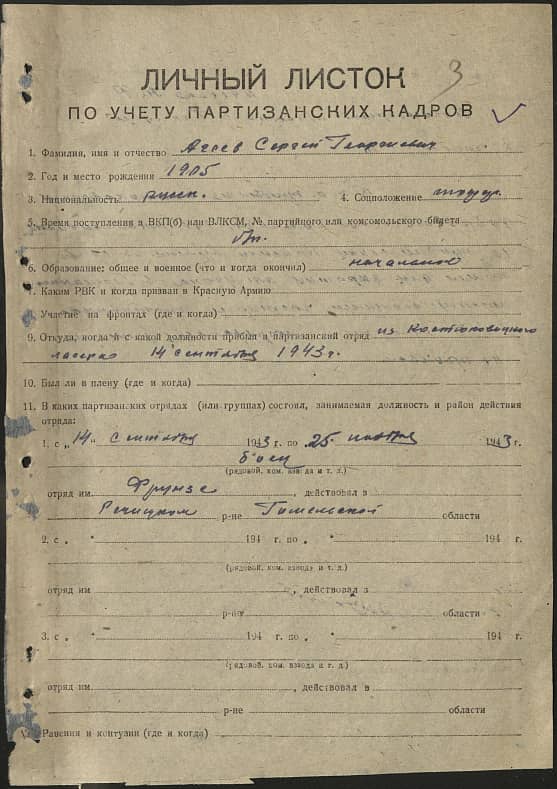 3
ЛИЧНЫЙ ЛИСТОК
ПО УЧЕТУ ПАРТИЗАНСКИХ КАДРОВ
1. Фамилия, имя и отчество Агеев Сергей Георгиевич
2. Год и место рождения 1905
3. Национальность русск. 4. Соцположение
5. Время поступления в ВКП(б) или ВЛКСМ, № партийного или комсомольского билета
б/п.
6. Образование: общее и военное (что и когда окончил) начальное
7. Каким РВК и когда призван в Красную Армию
8. Участие на фронтах (где и когда)
9. Откуда, когда и с какой должности прибыл в партизанский отряд из
лагеря 14 сентября 1943 г.
10. Был ли в плену (где и когда)
11. В каких партизанских отрядах (или группах) состоял, занимаемая должность и район действия
отряда:
1. с „14" сентября 1943 г. по 25 ноября 1943 г.
боец
(рядовой, ком. взвода и т. д.)
отряд им. Фрунзе, действовал в
Речицком р-не Гомельской области
2. с „ " 194 г. по „ " 194 г.
(рядовой, ком. взвода и т. д.)
отряд им , действовал з
р-не области
3. с „ " 194 г. по „ " 194 г.
(рядовой, ком. взвода и т. д.)
отряд им. , действовал в
р-не области
Ранения и контузии (где и когда)